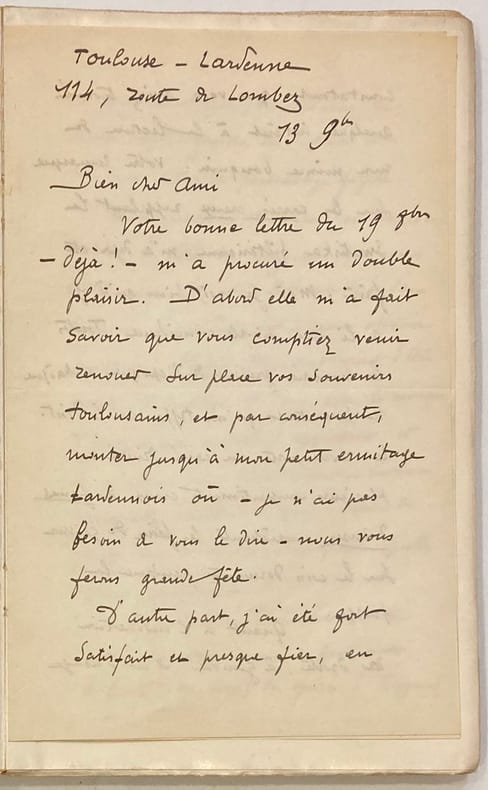 Toulouse - Lardenne
114, route de Lombez
13 9bre
Bien cher ami
Votre bonne lettre du 19 8bre
- déjà ! - m'a procuré un double
plaisir. D'abord elle m'a fait
savoir que vous comptiez venir
renouer sur place vos souvenirs
toulousains, et par conséquent,
monter jusqu'à mon petit ermitage
lardennois où - je n'ai pas
besoin de vous le dire - nous vous
ferons grande fête.
D'autre part, j'ai été fort
satisfait et presque fier, en